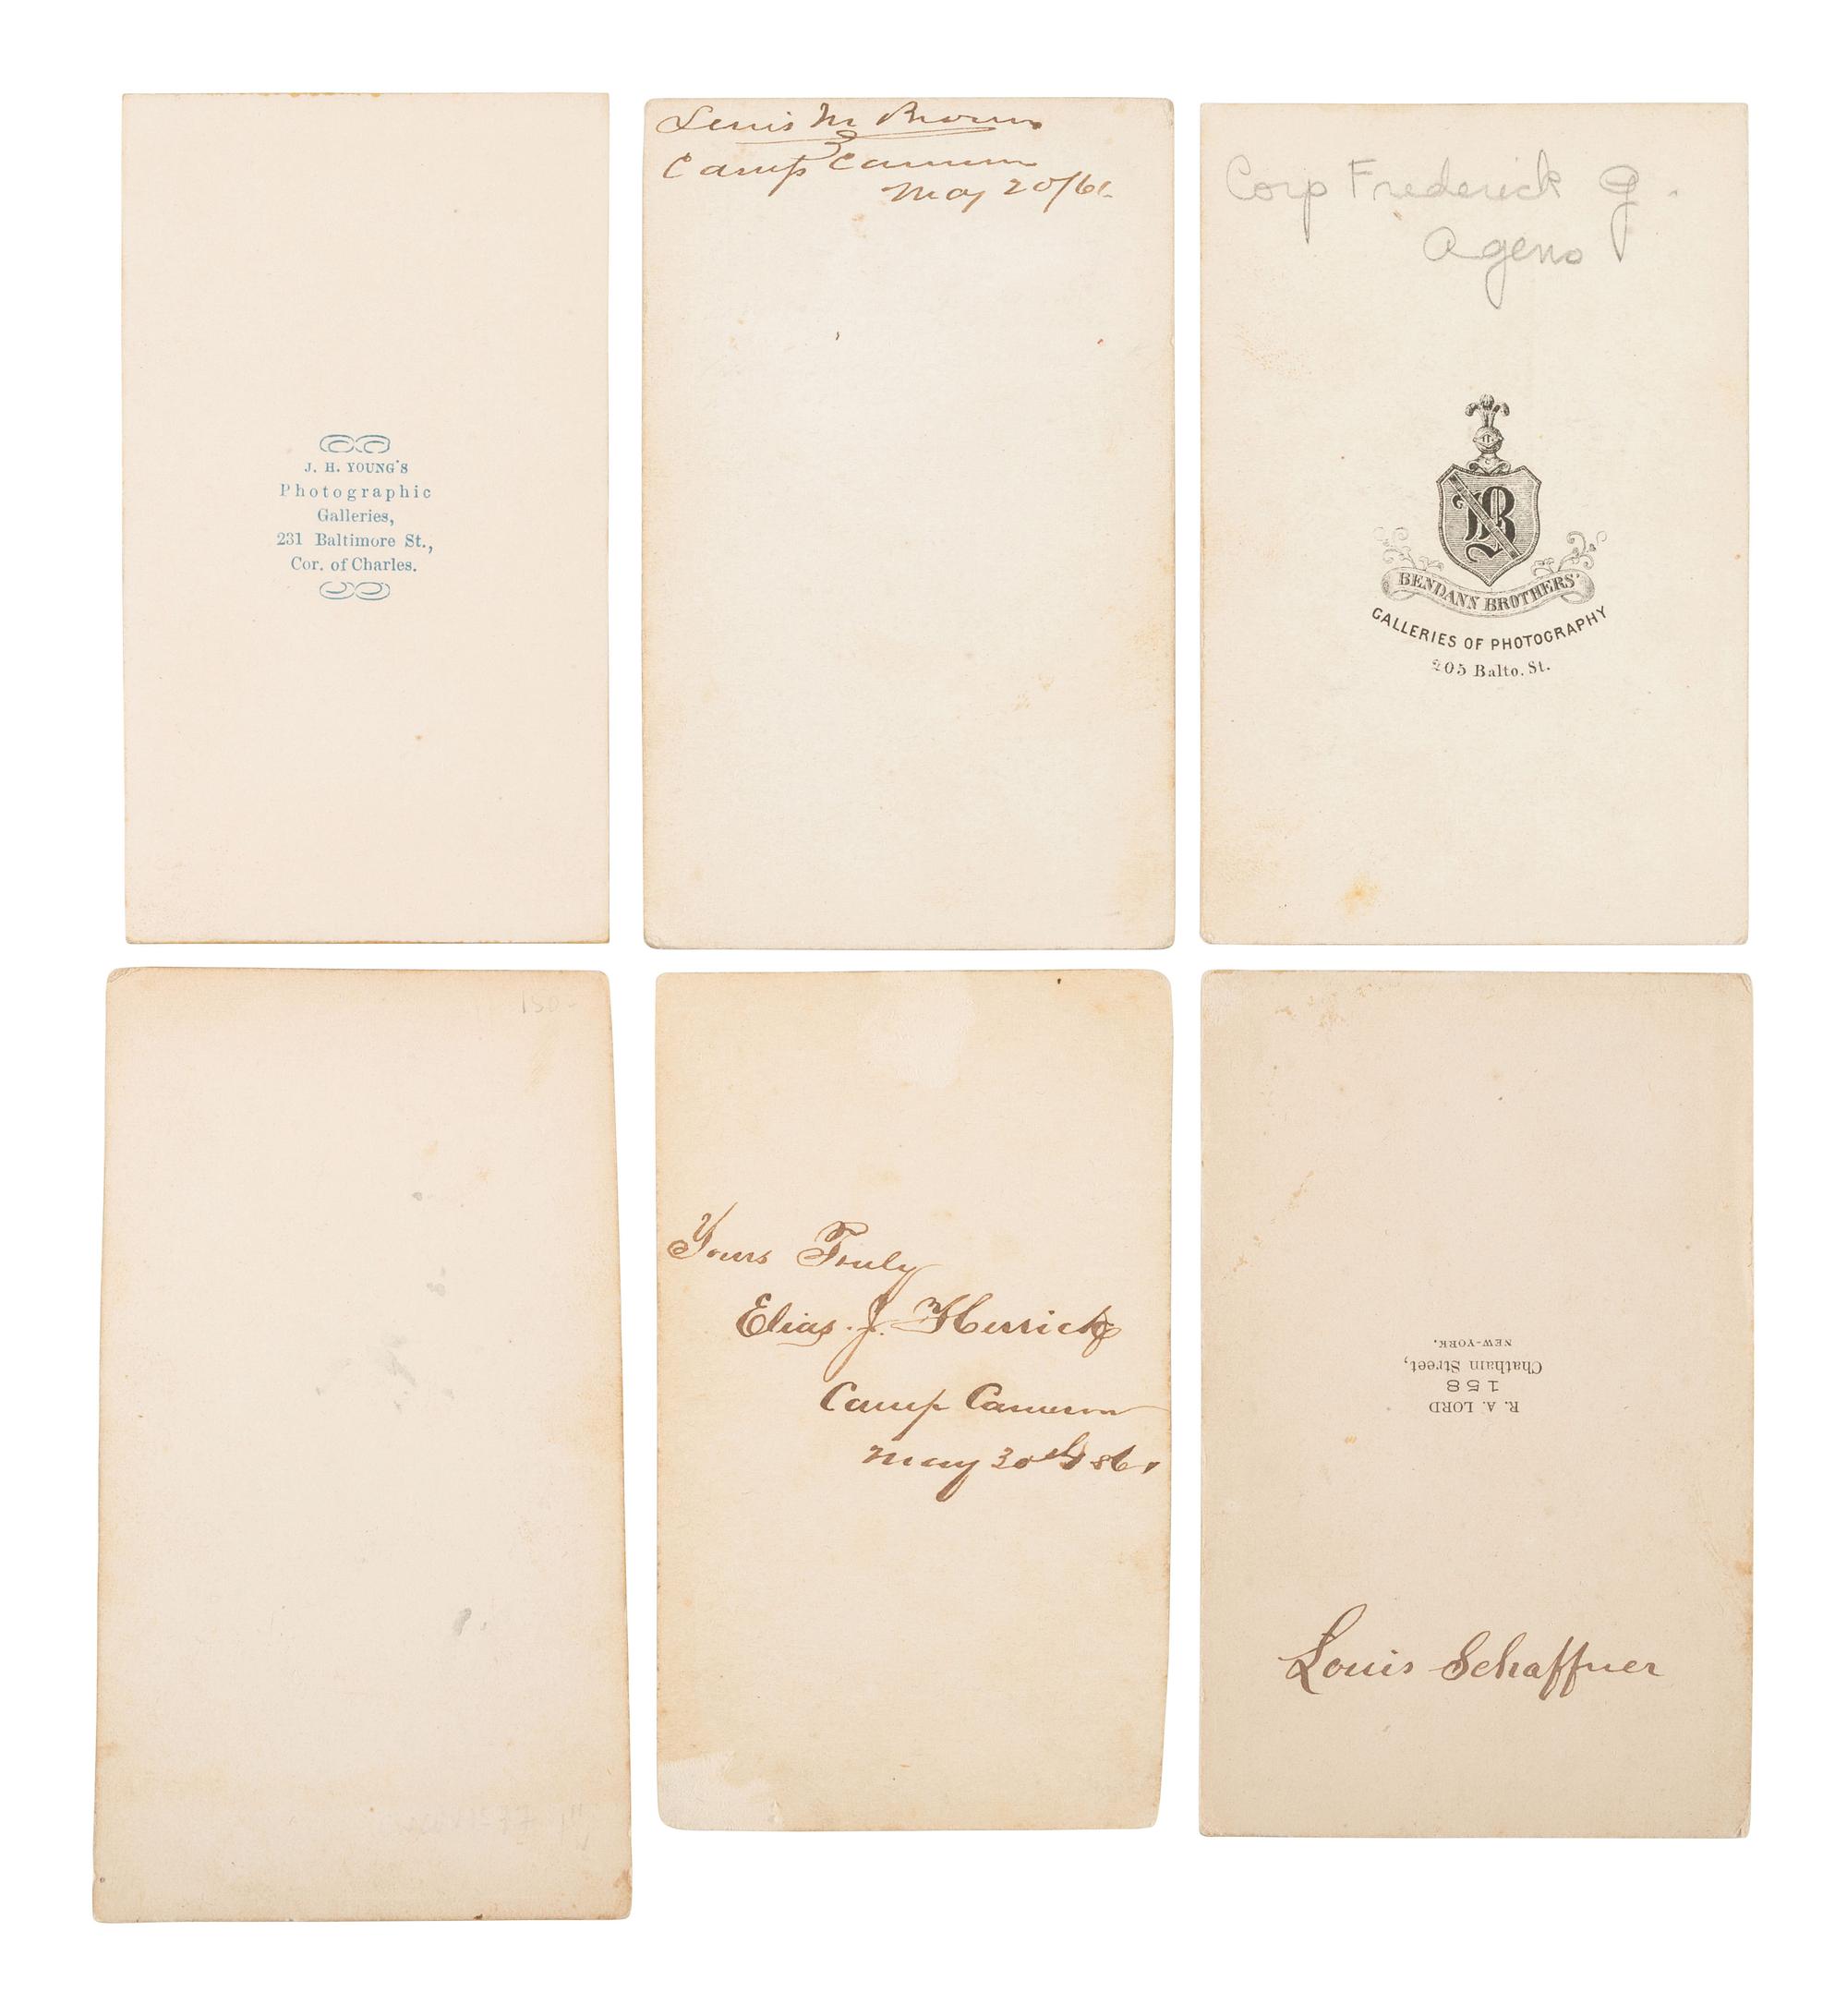 J. H. YOUNG'S
Photographic
Galleries,
231 Baltimore St.,
Cor. of Charles.
Lewis M Brown
Camp Cameron
May 20/61.
Corp Frederick G.
Ageno
B
BENDANN BROTHERS'
GALLERIES OF PHOTOGRAPHY
205 Balto. St.
150-
Yours Truly
Elias. J. Herrick
Camp Cameron
May 30th
R. A. LORD
158
Chatham Street,
NEW-YORK.
Louis Schaffner